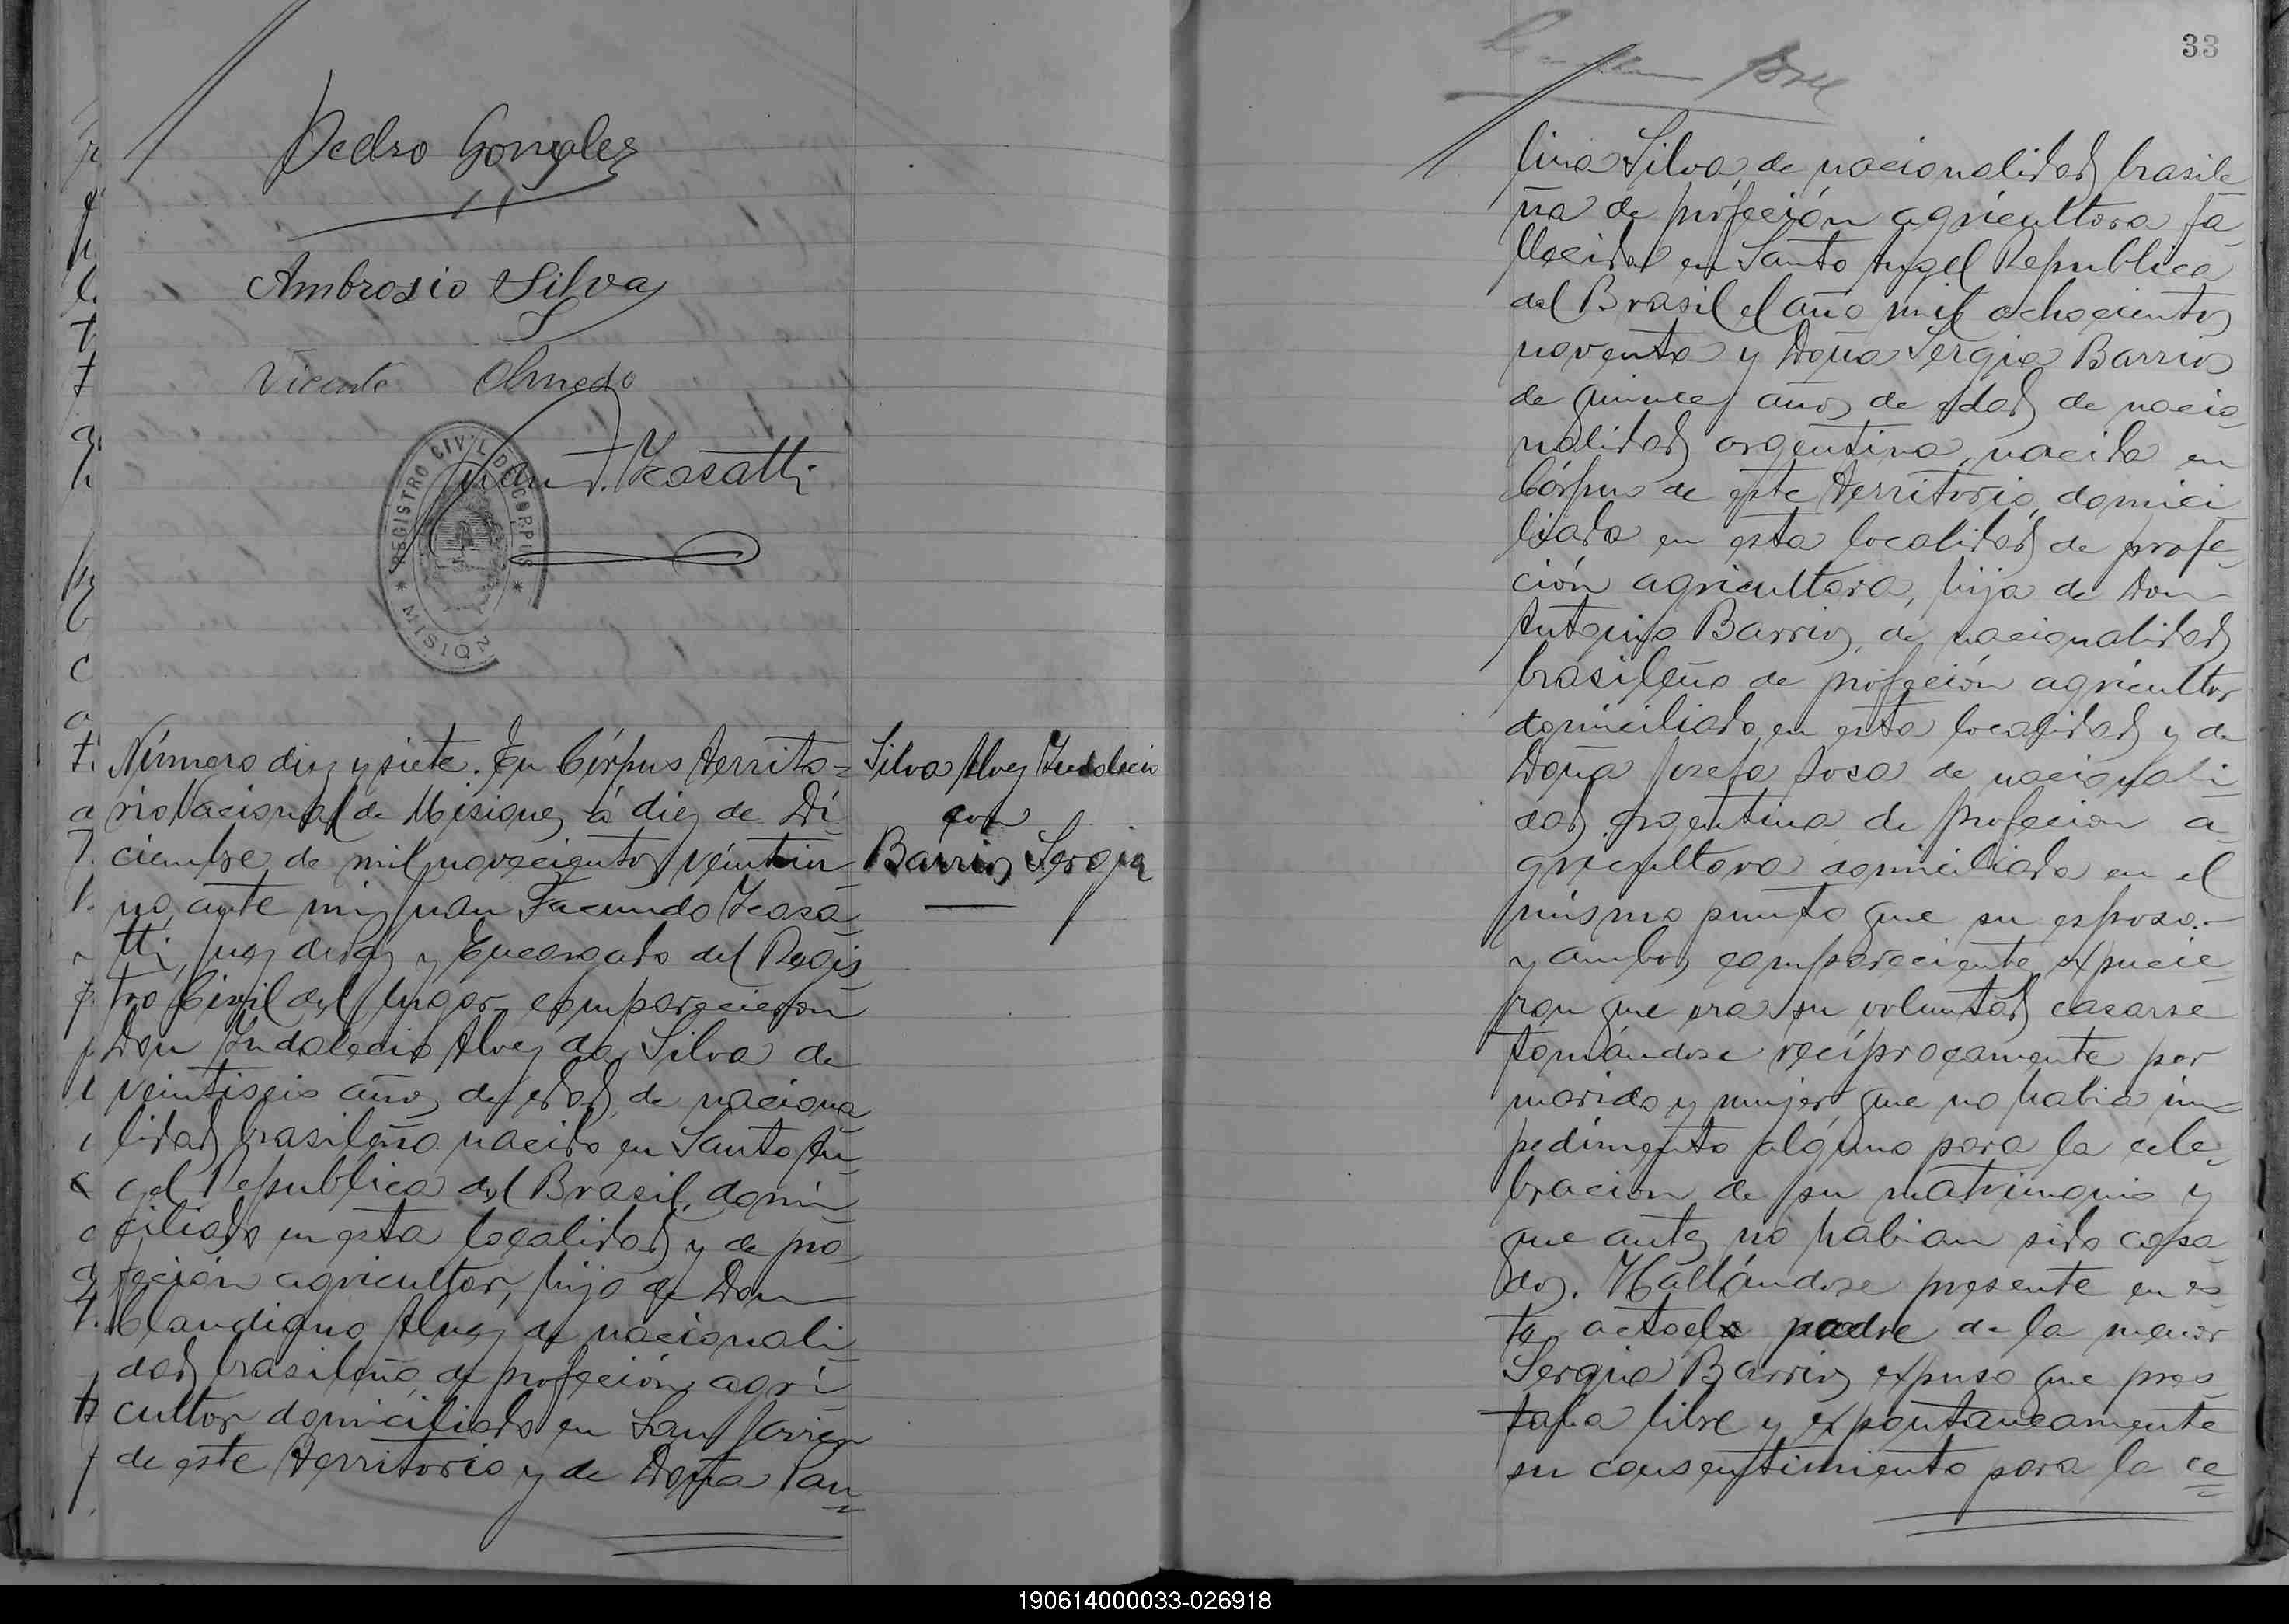 Pedro Gonzalez
Ambrosio Silva
Vicente Olmedo
Juan F. Icasatti
REGISTRO CIVIL DE CORPUS
* MISION
Número diez y siete. En Córpus territo=
rio Nacional de Misiones á diez de Di
ciembre de mil novecientos veintiu
no, ante mi Juan Facundo Icasa
tti, Juez de Paz y Encargado del Regis
tro Civil del lugar comparecieron
Don Indalecio Alvez da Silva de
veintiseis años de edad, de naciona
lidad brasileña nacido en Santo An
gel Republica del Brasil, domi
ciliado en esta localidad y de pro
feción agricultor, hijo de Don
Claudiano Alvez de nacionali
dad brasileña, de profeción agri
cultor domiciliado en San Javier
de este territorio y de Doña Pau
Silva Alvez Indalecio
con
Barrios Sergia
33
lina Silva, de nacionalidad brasile
ña de profeción agricultora fa
llecida en Santo Angel Republica
del Brasil el año mil ochocientos
noventa y Doña Sergia Barrios
de quince años de edad de nacio
nalidad argentina, nacida en
Córpus de este territorio, domici
liada en esta localidad de profe
ción agricultora, hija de Don
Antonio Barrios, de nacionalidad
brasileña de profeción agricultor
domiciliado en esta localidad y de
Doña Josefa Sosa de nacionali
dad argentina de profecion a
gricultora domiciliada en el
mismo punto que su esposo.-
y ambos compareciente expucie
ron que era su voluntad casarse
tomándose recíprocamente por
marido y mujer, que no habia im
pedimento alguno para la cele
bracion de su matrimonio y
que antes no habian sido casa
dos. Hallándose presente en es
te acto el padre de la menor
Sergia Barrios expuso que pres
taba libre y expontaneamente
su consentimiento para la ce
190614000033-026918